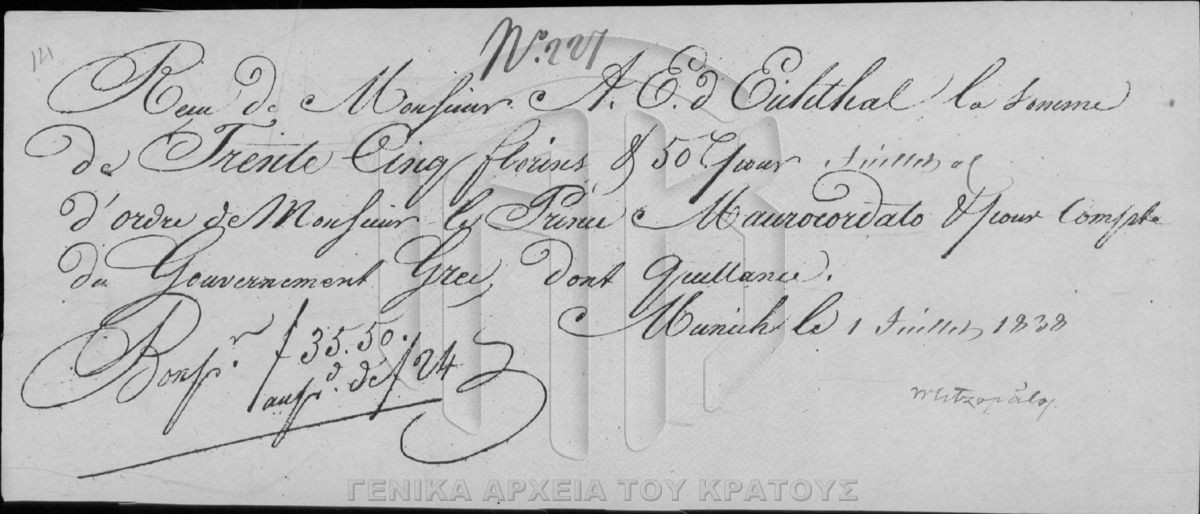 141
No. 227
Reçu de Monsieur A. E. d'Eichthal la somme
de Trente Cinq florins & 50 pour Juillet
d'ordre de Monsieur le Prince Maurocordato & pour Compte
du Gouvernement Grec, dont quittance.
Munich le 1 Juillet 1838
Bon pr f 35.50.
au pd. de f 24
ΓΕΝΙΚΑ ΑΡΧΕΙΑ ΤΟΥ ΚΡΑΤΟΥΣ